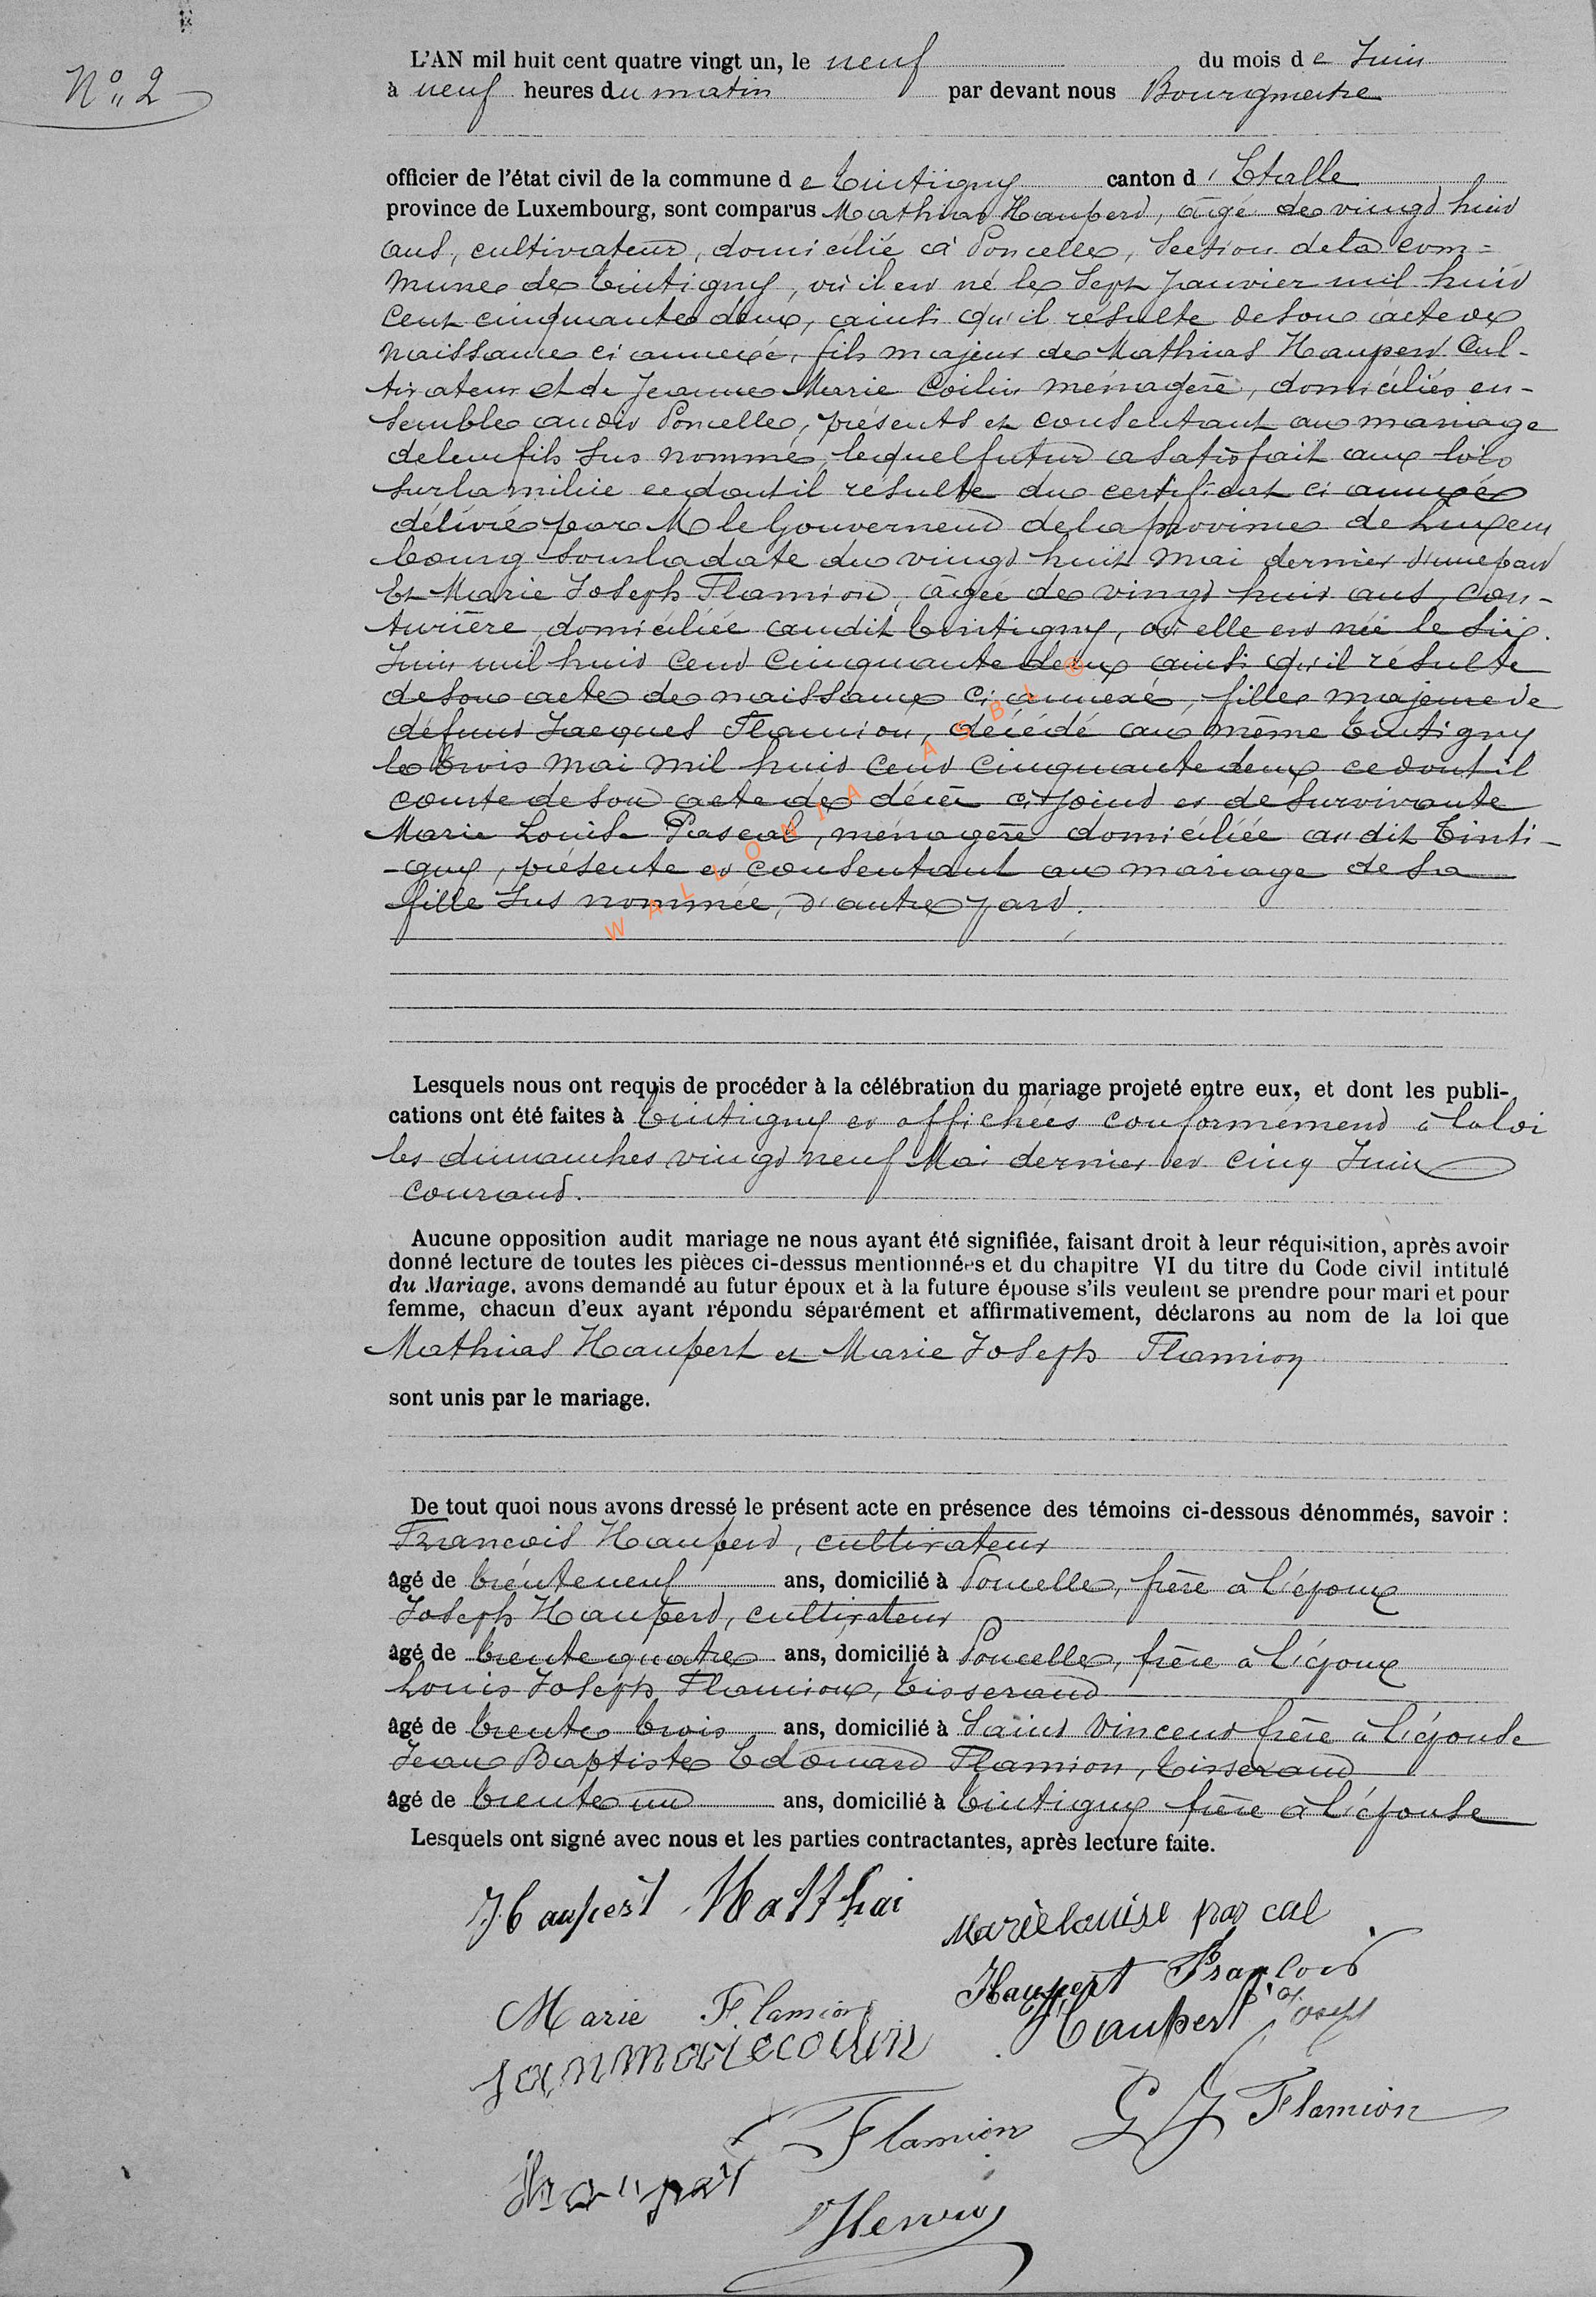 N° 2
L'AN mil huit cent quatre vingt un, le neuf du mois de Juin
à neuf heures du matin par devant nous Bourgmestre
officier de l'état civil de la commune de Tintigny canton d' Etalle
province de Luxembourg, sont comparus Mathias Haupert, âgé de vingt huit
ans, cultivateur, domicilié à Poncelle, Section de la com=
mune de Tintigny, où il est né le Sept Janvier mil huit
Cent cinquante deux, ainsi qu'il résulte de son acte de
naissance ci annexé, fils majeur de Mathias Haupert Cul-
tivateur et de Jeanne Marie Coilin ménagère, domiciliés en-
semble audit Poncelle, présents et consentant au mariage
de leur fils sus nommé, lequel futur a satisfait aux lois
sur la milice ce dont il résulte du certificat ci annexé
délivré par M le Gouverneur de la province de Luxem
bourg sous la date du vingt huit Mai dernier d'une part
Et Marie Joseph Flamion, âgée de vingt huit ans, Cou-
turière, domiciliée audit Tintigny, où elle est née le Six
Juin mil huit Cent Cinquante deux ainsi qu'il résulte
de son acte de naissance ci annexé, fille majeure de
défunt Jacques Flamion, décédé au même Tintigny
le trois Mai mil huit Cent Cinquante deux ce dont il
conste de son acte de décès ci joint et de survivante
Marie Louise Pascal, ménagère domiciliée audit Tinti-
-gny, présente et consentant au mariage de sa
fille sus nommée, d'autre part.
WALLONIA ASBL ©
Lesquels nous ont requis de procéder à la célébration du mariage projeté entre eux, et dont les publi-
cations ont été faites à Tintigny et affichées conformément à la loi
les dimanches vingt neuf Mai dernier et cinq Juin
courant.
Aucune opposition audit mariage ne nous ayant été signifiée, faisant droit à leur réquisition, après avoir
donné lecture de toutes les pièces ci-dessus mentionnées et du chapitre VI du titre du Code civil intitulé
du Mariage, avons demandé au futur époux et à la future épouse s'ils veulent se prendre pour mari et pour
femme, chacun d'eux ayant répondu séparément et affirmativement, déclarons au nom de la loi que
Mathias Haupert et Marie Joseph Flamion
sont unis par le mariage.
De tout quoi nous avons dressé le présent acte en présence des témoins ci-dessous dénommés, savoir :
Francois Haupert, cultivateur
âgé de trente neuf ans, domicilié à Poncelle, frère à l'époux
Joseph Haupert, cultivateur
âgé de trente quatre ans, domicilié à Poncelle, frère à l'époux
Louis Joseph Flamion, tisserand
âgé de trente trois ans, domicilié à Saint Vincent frère à l'épouse
Jean Baptiste Edouard Flamion, tisserand
âgé de trente un ans, domicilié à Tintigny frère à l'épouse
Lesquels ont signé avec nous et les parties contractantes, après lecture faite.
Haupert Matthai
Marielouise pascal
Marie Flamion
Haupert François
Haupert Joseph
Flamion
Flamion